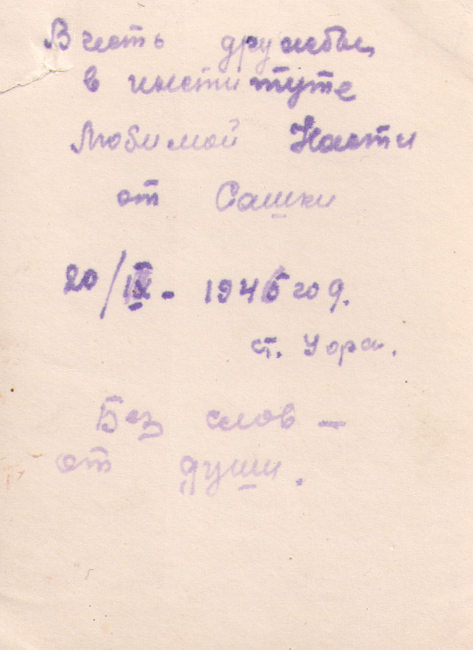 В честь дружбы
в институте
Любимой Насти
от Сашки
20/IX - 1946 год.
ст. Уора.
Без слов –
от души.